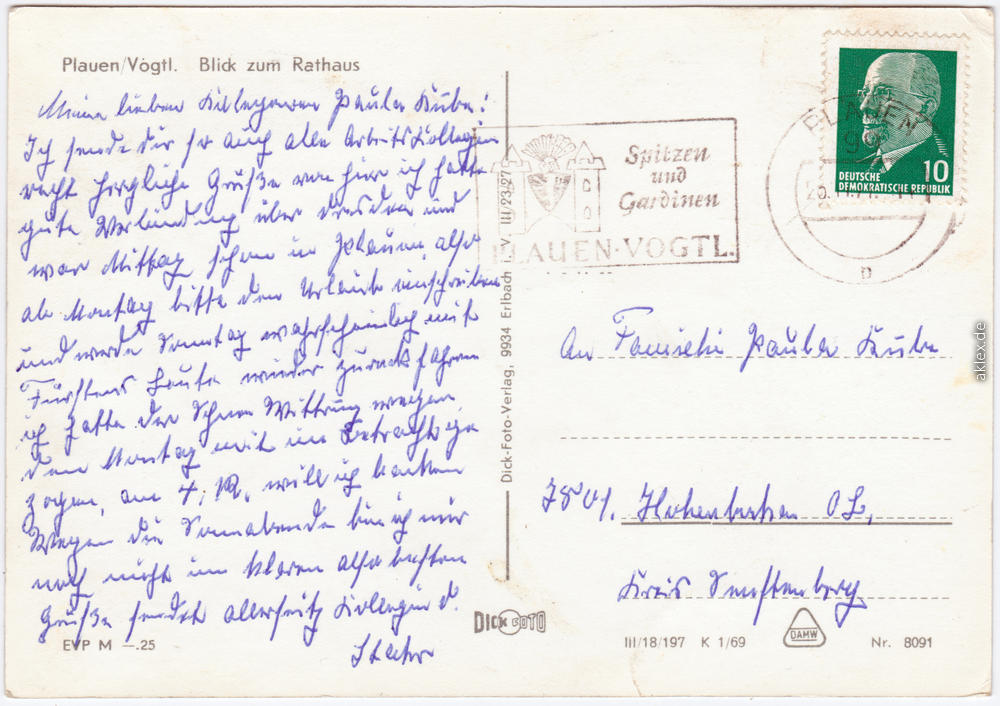 Plauen/Vogtl. Blick zum Rathaus
Meine lieben Kollegen Paula Kube!
Ich sende dir so auch allen Arbeitskollegen
recht herzliche Grüße von hier ich hatte
gute Verbindung über Dresden und
war Mittag schon in Plauen, also
ab Montag bitte den Urlaub einschreiben
und werde Sonntag wahrscheinlich mit
Fürstens Leute wieder zurück fahren
ich hatte der Schnee Wittrung wegen
den Montag mit in Betracht ge
zogen, am 4. 12. will ich backen
Wegen die Sonnabende bin ich mir
noch nicht im klaren also besten
Grüße sendet allerseitz Kollegin d.
EVP M —.25
Dick-Foto-Verlag, 9934 Erlbach i. V. III/23/27
DICK FOTO
Spitzen
und
Gardinen
PLAUEN·VOGTL.
PLAUEN
99
D
10
DEUTSCHE
DEMOKRATISCHE REPUBLIK
An Familie Paula Kube
7801. Hohenbocka OL,
Kreis Senftenberg
III/18/197 K 1/69
DAMW
Nr. 8091
aklex.de